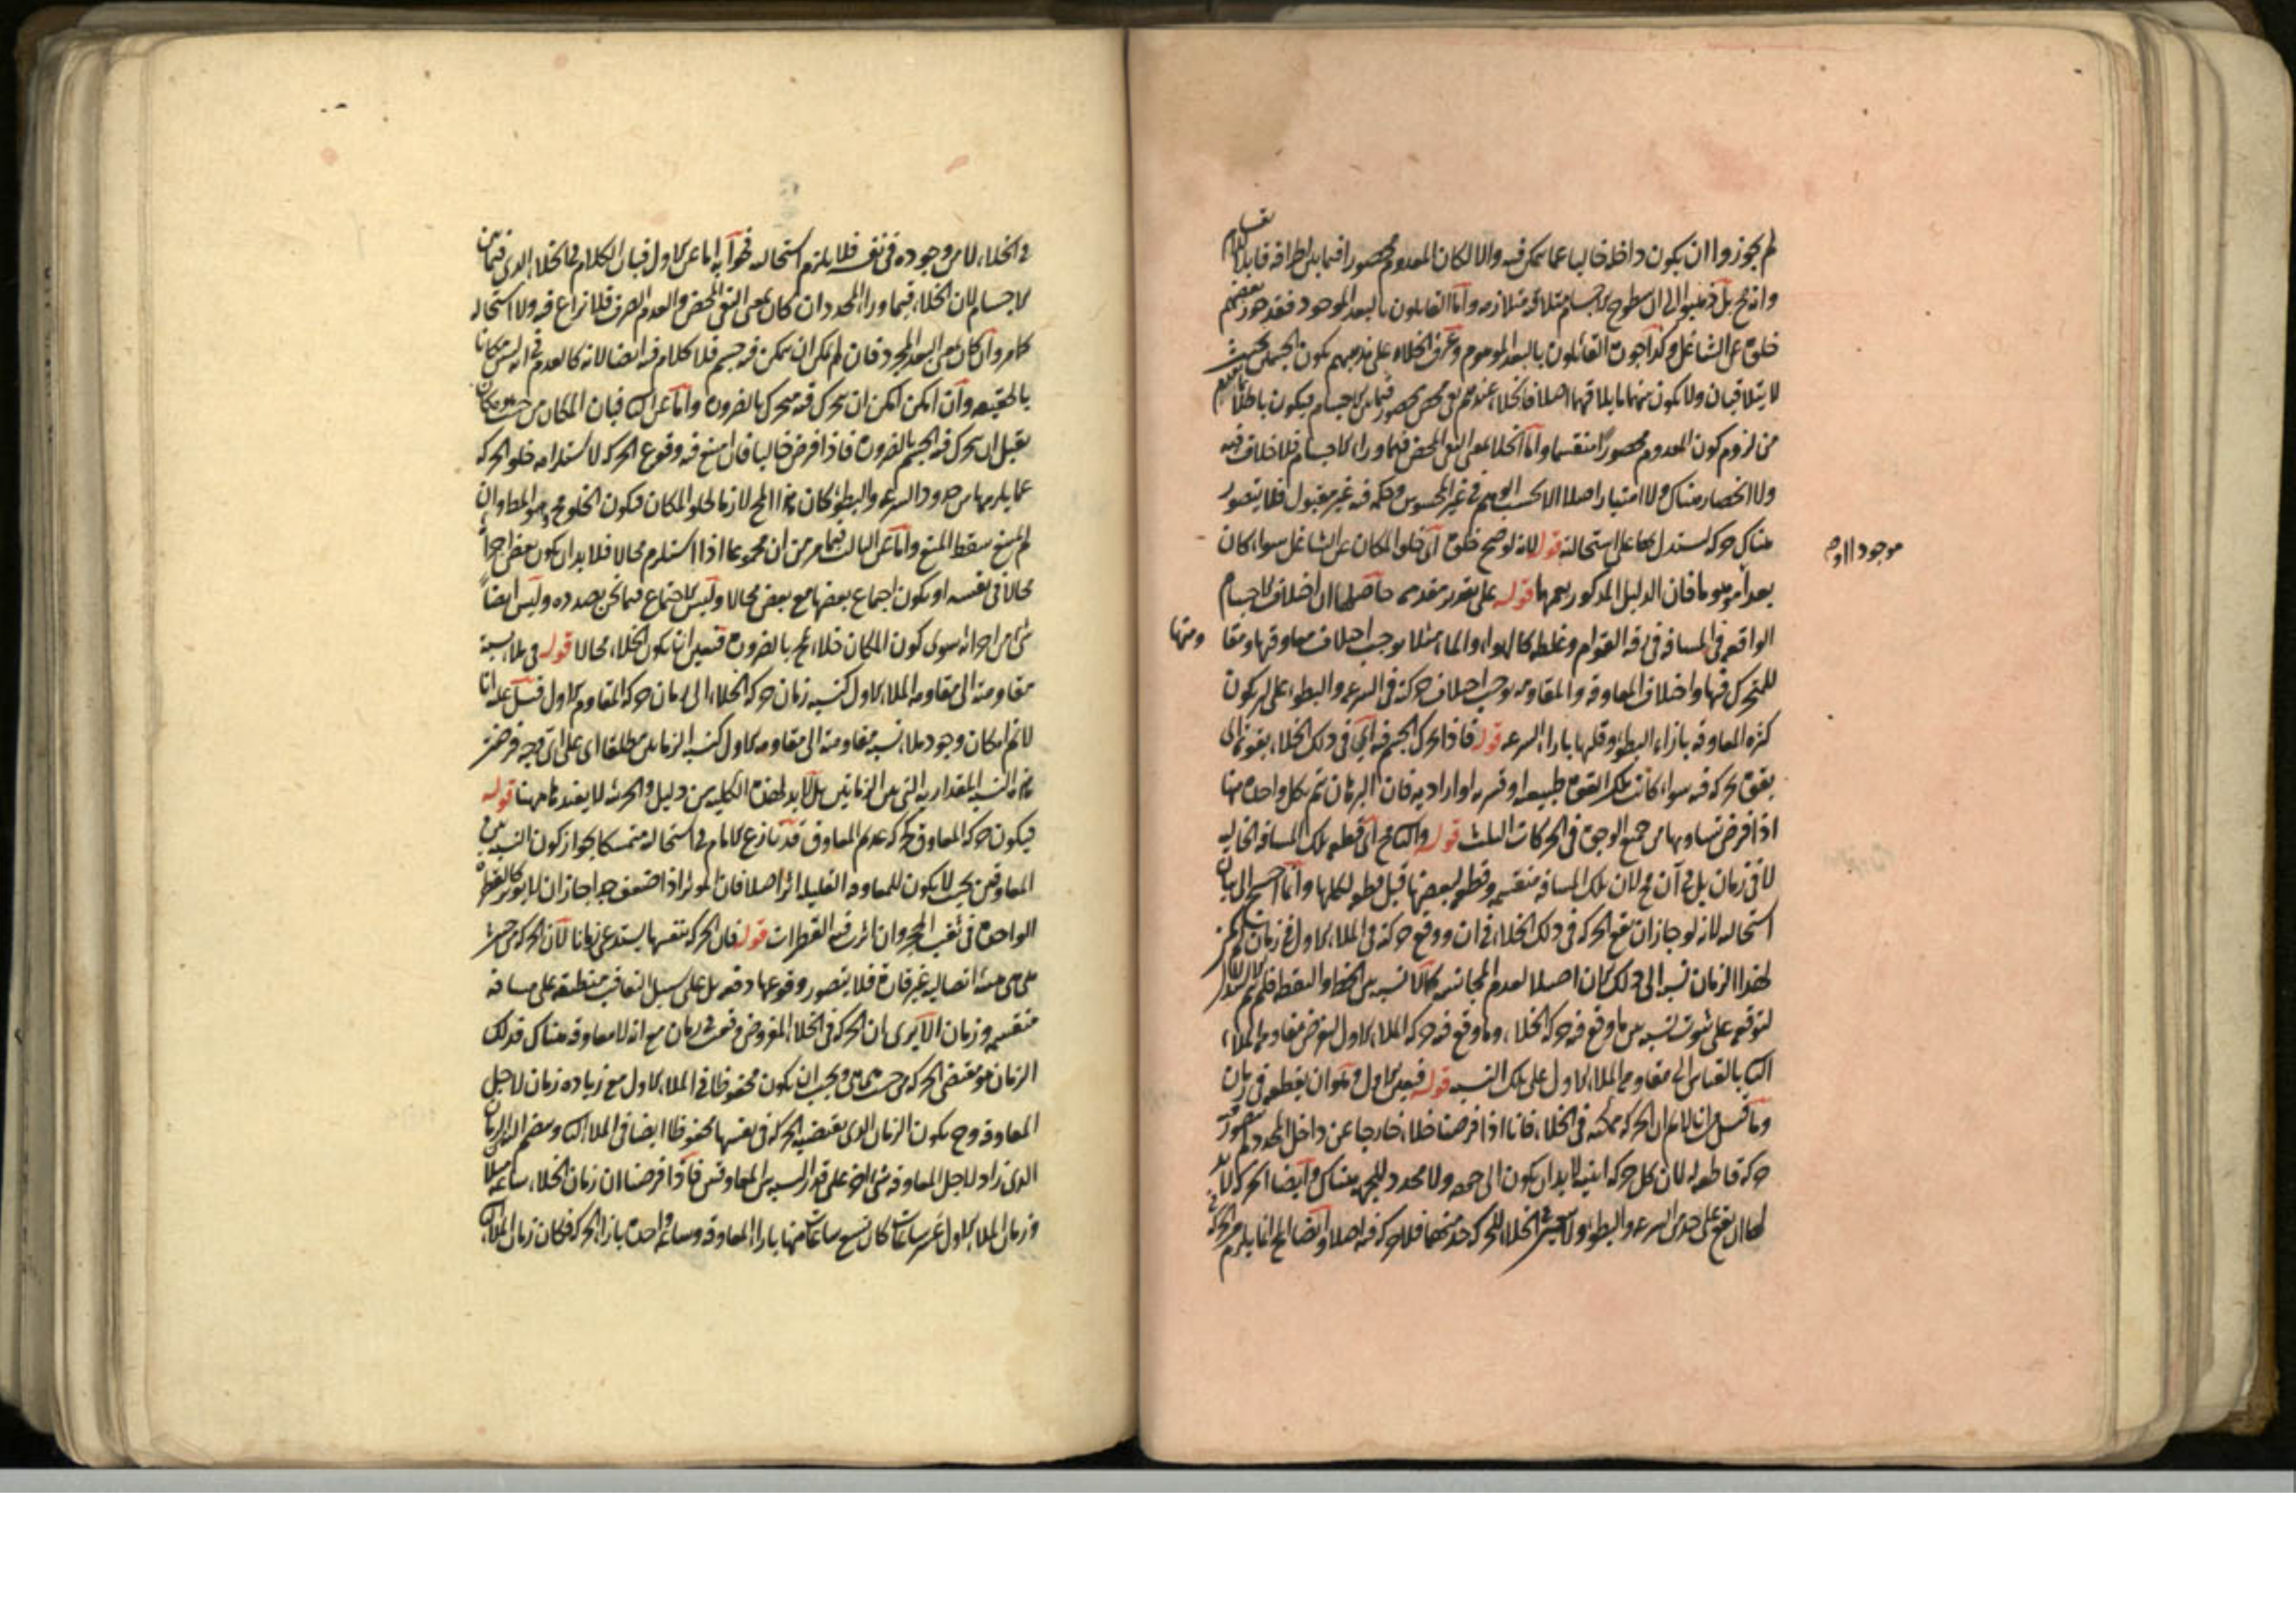 لم يجوزوا ان يكون داخله خاليا عما يتمكن فيه والا لكان المعدوم محصورا فيما بين اطرافه قابلا للتقسيم
وانه مح بل ذهبوا الى ان سطوح الاجسام متلاقية متلازمة واما القايلون بالبعد الموجود فقد جوز بعضهم
خلوه عن الشاغل وكذا جوزه القائلون بالبعد الموهوم وعرف الخلاء على مذهبهم بكون الجسمين بحيث
لا يتلاقيان ولا يكون بينهما ما يلاقيهما اصلا فالخلاء عندهم نفي محض محصور فيما بين الاجسام فيكون باطلا
من لزوم كون المعدوم محصورا منقسما واما الخلاء بمعنى النفي المحض فيما وراء الاجسام فلا خلاف فيه
ولا انحصار هناك ولا امتياز اصلا الا بحسب الوهم في غير المحسوس وحكمه فيه غير مقبول فلا يتصور
هناك حركة يستدل بها على استحالته قوله لانه لو صح خلوه اى خلو المكان عن الشاغل سواء كان
موجودا او م
بعدا موهوما فان الدليل المذكور يعمهما قوله على تقدير مقدمة حاصلها ان اختلاف الاجسام
الواقعة في المسافة في رقة القوام وغلظه كالهواء والماء مثلا يوجب اختلاف معاوقتها ومقا ومتها
للمتحرك فيها واختلاف المعاوقة والمقاومة يوجب اختلاف حركته في السرعة والبطوء على ان يكون
كثرة المعاوقة بازاء البطوء وقلتها بازاء السرعة قوله فاذا تحرك الجسم فيه اى في ذلك الخلاء بقوة الى
بقوة تحركه فيه سواء كانت تلك القوة طبيعية او قسرية او ارادية فان البرهان تم بكل واحدة منها
اذا فرض تساويها من جميع الوجوه في الحركات الثلث قوله والتالى مح اى قطعه تلك المسافة الخالية
لا في زمان بل في آن مح لان تلك المسافة منقسمة وقطعه لبعضها قبل قطعه لكلها وانما احتيج الى بيان
استحالته لانه لو جاز ان تقع الحركة في ذلك الخلاء في ان ووقع حركته في الملاء الاول في زمان لم يكن
لهذا الزمان نسبة الى ذلك الان اصلا لعدم المجانسة كما لا نسبة بين الخط والنقطة فلم يتم الاستدلال
لتوقفه على ثبوت نسبة بين ما وقع فيه حركة الخلاء وما وقع فيه حركة الملاء الاول ليفرض مقاومة الملاء
الثانى بالقياس الى مقاومة الملاء الاول على تلك النسبة قوله فبعد الاول وهو ان يقطعه في زمان
وما قيل من انا لا نم ان الحركة ممكنة في الخلاء فانا اذا فرضنا خلاء خارجا عن داخل المحدد لم يتصور فيه
حركة قاطعة له لان كل حركة اينية لابد ان يكون الى جهة ولا محدد للجهة هناك وايضا الحركة لابد
لها ان تقع على حد من السرعة والبطوء ولا معين في الخلاء للحركة حد منهما فلا حركة فيه اصلا وايضا المح انما يلزم من الحركة
في الخلاء لا من وجوده في نفسه فلا يلزم استحالته فجوابه اما عن الاول فبان الكلام في الخلاء الذى فيما بين
الاجسام لان الخلاء فيما وراء المحدد ان كان بمعنى النفي المحض والعدم الصرف فلا نزاع فيه ولا استحالة
كما مر وان كان بمعنى البعد المجرد فان لم يمكن ان يتمكن فيه جسم فلا كلام فيه ايضا لانه كالعدم في انه ليس مكانا
بالحقيقة وان امكن امكن ان يتحرك فيه متحرك بالضرورة واما عن الثانى فبان المكان من حيث هو مكان
يقبل ان يتحرك فيه الجسم بالضرورة فاذا فرض خاليا فان امتنع فيه وقوع الحركة لاستلزامه خلو الحركة
عما يلزمها من حدود السرعة والبطوء كان هذا المح لازما لخلو المكان فيكون الخلو مح وهو المط وان
لم يمتنع سقط المنع واما عن الثالث فبما مر من ان مجموعا اذا استلزم محالا فلا بد ان يكون بعض اجزائه
محالا في نفسه او يكون اجماع بعضها مع بعض محالا وليس الاجتماع فيما نحن بصدده وليس ايضا
شئ من اجزائه سوى كون المكان خلاء مح بالضرورة فتعين ان يكون الخلاء محالا قوله في ملاء نسبة
مقاومته الى مقاومة الملاء الاول كنسبة زمان حركة الخلاء الى زمان حركة المقاوم الاول قيل عليه انا
لا نم امكان وجود ملاء نسبة مقاومته الى مقاومة الاول كنسبة الزمانين مطلقا اى على اى وجه فرضت
من النسب المقدارية التى بين الزمانين بل لابد لهذه الكلية من دليل والجزئية لا يفيدنا ههنا قوله
فيكون حركة المعاوق كحركة عديم المعاوق قد نازع الامام في استحالته متمسكا بجواز كون النسبة بين
المعاوقتين بحيث لا يكون للمعاوقة القليلة اثر اصلا فان المؤثر اذا ضعف جدا جاز ان لا يؤثر كالقطرة
الواحدة في ثقب الحجر وان اثرت فيه القطرات قوله فان الحركة بنفسها يستدعى زمانا لان الحركة من حيث
هى هى هيئة اتصالية غير قارة فلا يتصور وقوعها دفعة بل على سبيل التعاقب منطبقة على مسافة
منقسمة وزمان الا يرى ان الحركة في الخلاء المفروض وقعت في زمان مع انه لا معاوقة هناك فذلك
الزمان هو مقتضى الحركة من حيث هى هى ويجب ان يكون محفوظا في الملاء الاول مع زيادة زمان لاجل
المعاوقة وح يكون الزمان الذى يقتضيه الحركة في نفسها محفوظا ايضا في الملاء الثانى وينضم اليه من الزمان
الذى زاد لاجل المعاوقة شئ اخر على قدر النسبة بين المعاوقتين فاذا فرضنا ان زمان الخلاء ساعة مثلا
وزمان الملاء الاول عشر ساعات كان تسع ساعات منها بازاء المعاوقة وساعة واحدة بازاء الحركة فكان زمان الملاء الثانى